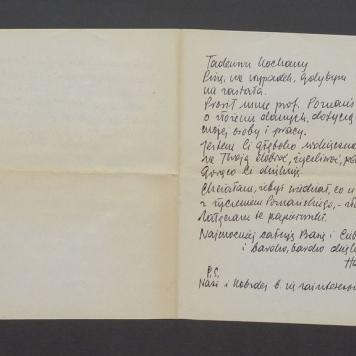 Tadeuszu Kochany
Piszę na wypadek, gdybym
nie zastała.
Prosił mnie prof. Poznańs
o złożenie danych, dotyczą
mojej osoby i pracy.
Jestem Ci głęboko wdzięczna
za Twoją dobroć, życzliwość,
Gorąco Ci dziękuję.
Chciałam, żebyś wiedział, co
z życzeniem Poznańskiego, -
Załączam te papierzyki.
Najmocniej całuję Basię i
i bardzo, bardzo dzięk
P.S.